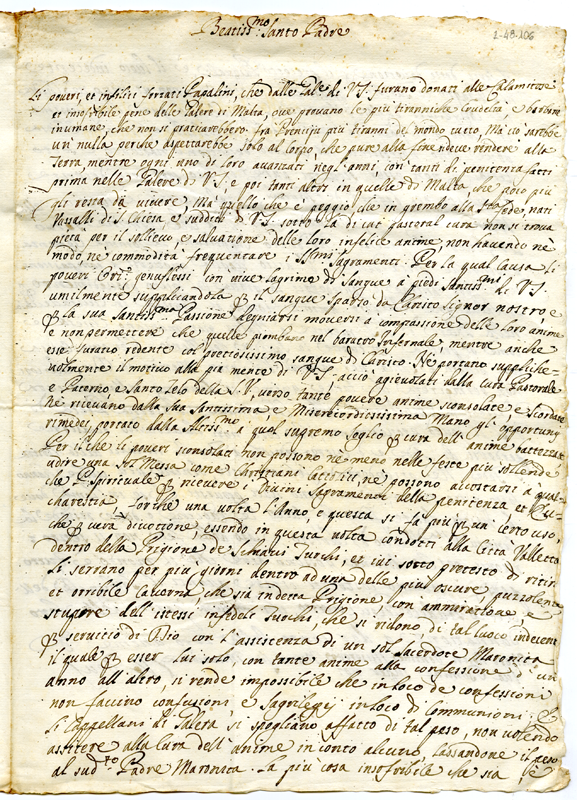 Beatiss:mo Santo Padre
2-48.106
Li poveri, et infelici forzati Papalini, che dalle Galé di V.S. furano donati alle Calamitose
et insofribile pene delle Galere di Malta, ove provano le più tiranniche Crudeltà e barbarie
inumane, che non si praticarebbero frà Prencipi più tiranni del mondo tutto. Mà ciò sarebbe
un nulla perche aspettarebbe solo al Corpo, che pure alla fine deve rendere alla
Terra mentre ogni uno di loro avanzati negl'anni, con tanti di penitenza fatti
prima nelle Galere di V.S. e poi tant'altri in quelle di Malta, che poco più
gli resta da vivere, Mà quello che è peggio, che in grembo alla S.ta fede, nati
Vassalli di S. Chiesa e sudditi di V.S. sotto la di cui pastoral cura non si trova
pietà per il sollievo, e salvatione delle loro infelice anime, non havendo nè
modo, ne commodità frequentare i SSmi Sagramenti. Per la qual Causa li
poveri Ori: genuflessi con vive lagrime di sangue a piedi Santissmi di V.S.
umilmente supplicandola per il sangue sparso da Christo Signor nostro, e
per la sua Santissma Passione degniarsi moversi a compassione delle loro anime
e non permettere che quelle piombano nel baratro Infernale, mentre anche
esse furano redente col pretiosissimo sangue di Christo. Ne portano suppliche-
volmente il motivo alla pia mente di V.S., acciò agievolati dalla cura Pastorale
e Paterno, e Santo Zelo della S.V. verso tante povere anime sconsolate e scordate
Ne ricevano dalla sua Santissima e Misericordiosissima Mano gl'opportuni
rimedei, portato dalla Altissmo a qual supremo seglio per cura dell'anime battezzate
Per il che li poveri sconsolati non possono ne meno nelle feste più sollende
udire una Sta Messa come Christiani Cattolici, ne possono accostarsi a qual-
che P. Spirituale per ricevere i Divini Sagramenti della penitenza et Eu-
charestia, forche una volta l'Anno e questa si fa più per un certo uso,
che per vera divotione, essendo in questa volta condotti alla Città Valletta
dentro della Prigione de Schiavi Turchi, et cui sotto pretesto di ritiri
Si serrano per più giorni dentro ad una delle più oscure, puzzolente
et orribile Caverna che sia indetta Prigione, con ammiratione, e
stupore dell'istessi infideli Turchi, che si ridono di tal luoco indecente
per servicio di Dio con l'assistenza di un sol Sacerdote Maronita
il quale per esser lui solo, con tante anime alla confessione d'un
anno all'altro, si rende impossibile che in loco de confessioni
non faccino confusioni e Sagrilegij in loco di Communioni; e
Li Cappellani di Galera, si spogliano affatto di tal peso, non volendo
assistere alla Cura dell'anime in conto alcuno, lassandone il peso
al sudto Padre Maronita. La più cosa insofribile che sia, è